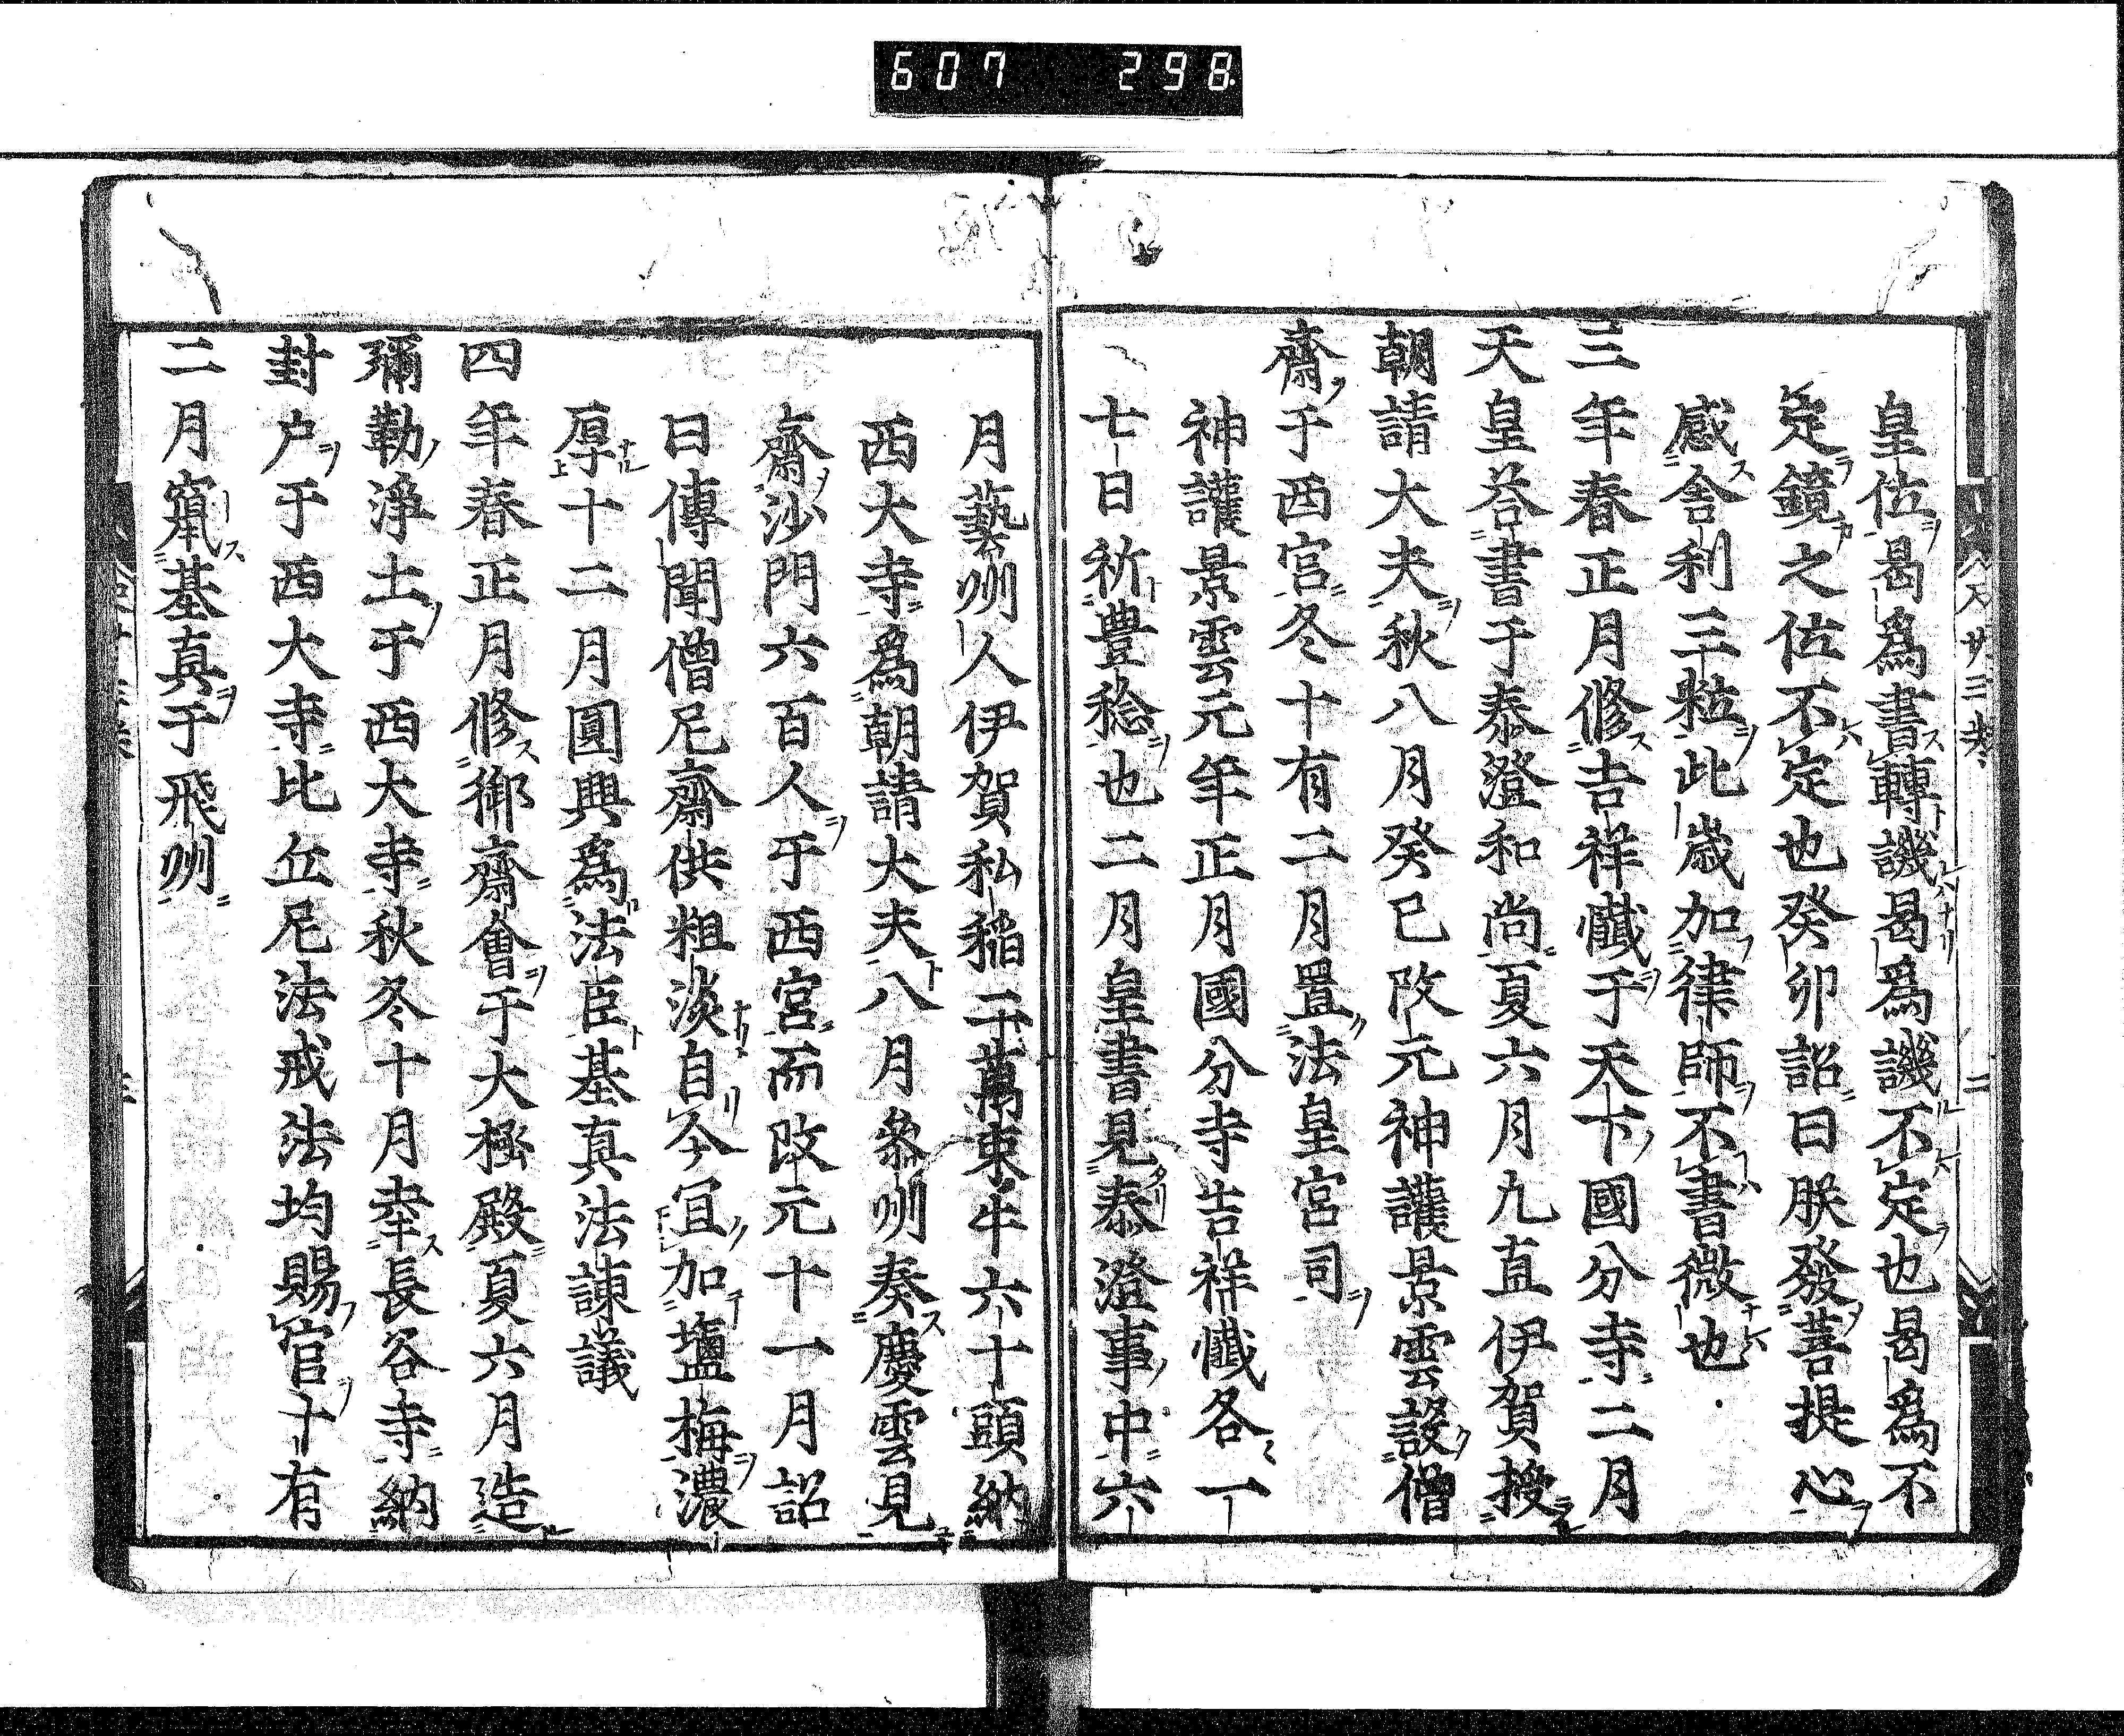 607 298
皇位曷爲書轉譏曷爲譏不定也曷爲不
定鏡之位不定也癸卯詔曰朕發菩提心
感舍利三粒此歲加律師不書微也
三年春正月修吉祥懺于天下國分寺二月
天皇荅書于泰澄和尚夏六月九直伊賀授
朝請大夫秋八月癸巳改元神護景雲設僧
齋于西宮冬十有二月置法皇宮司
神護景雲元年正月國分寺吉祥懺各一
七日祈豊稔也二月皇書見泰澄事中六
月藝州人伊賀私稲二萬束牛六十頭納
西大寺爲朝請大夫八月叅州奏慶雲見
齋沙門六百人于西宮而改元十一月詔
曰傳聞僧尼齋供粗淡自今宜加鹽梅濃
厚十二月圓興爲法臣基真法諫議
四年春正月修御齋會于大極殿夏六月造
彌勒淨土于西大寺秋冬十月幸長谷寺納
封户于西大寺比丘尼法戒法均賜官十有
二月竄基真于飛州